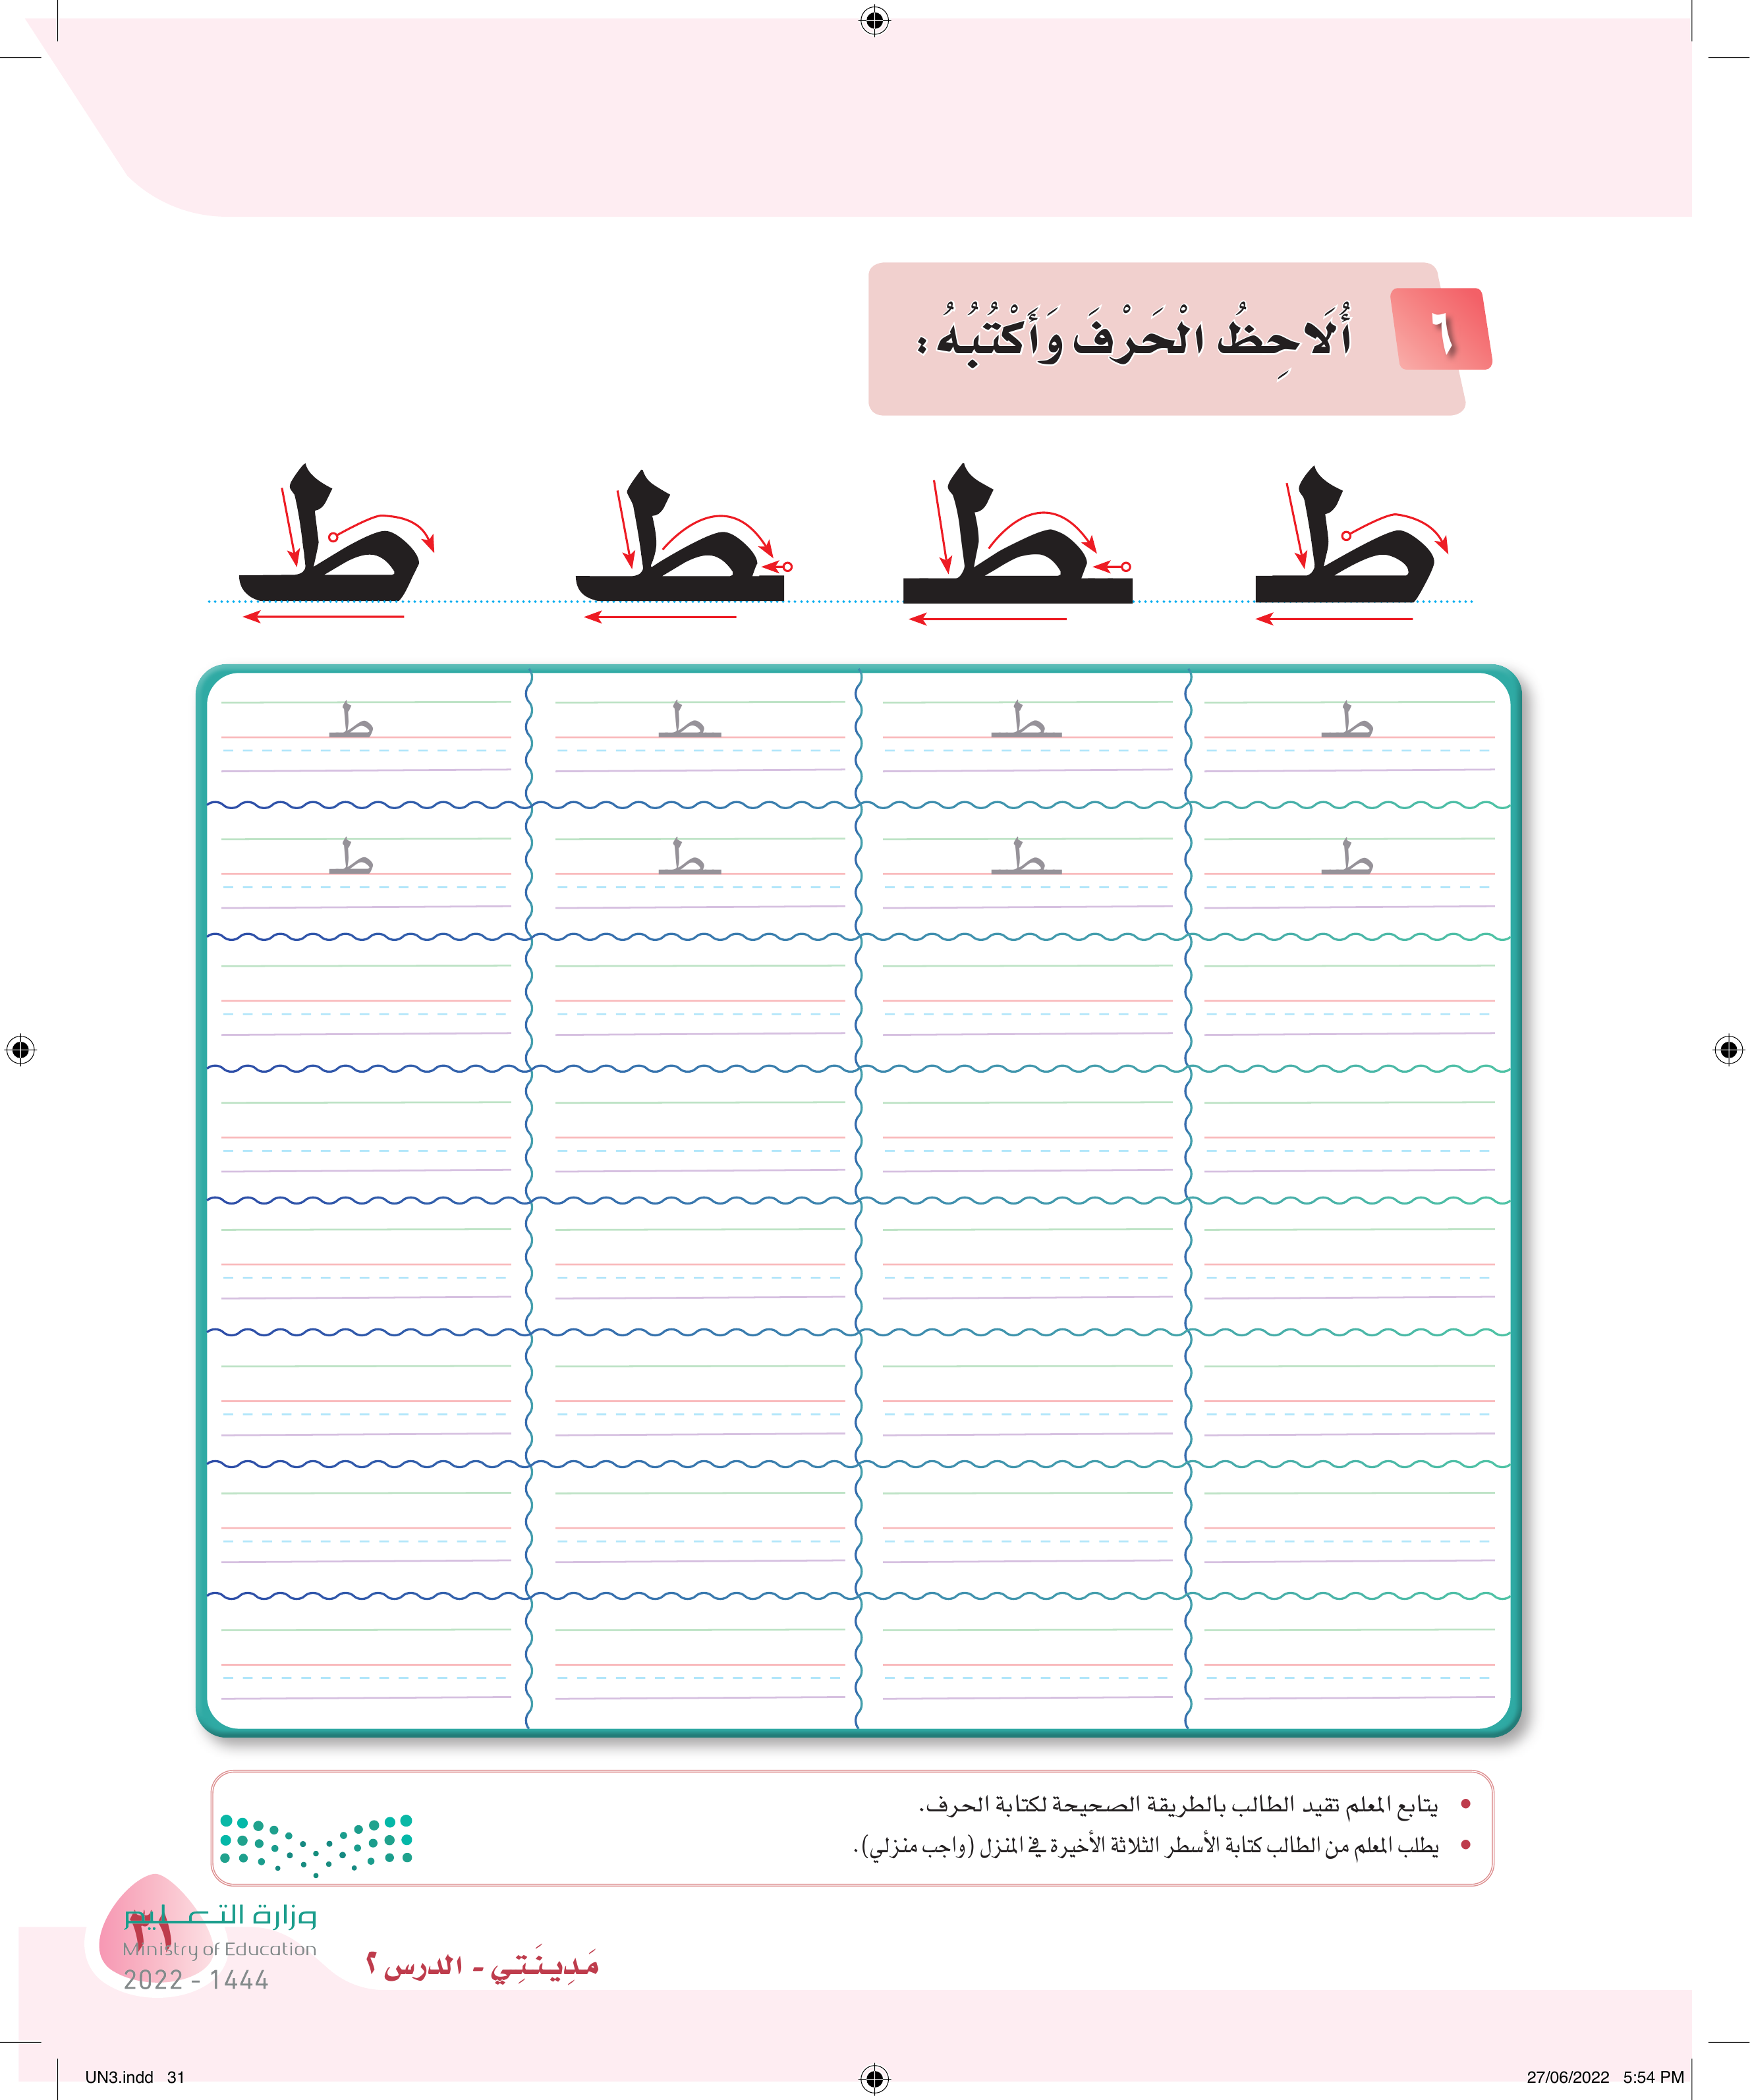 ٦
أُلَاحِظُ الْحَرْفَ وَأَكْتُبُهُ :
ط ـطـ ـط ط
ط ـطـ ـط ط
ط ـطـ ـط ط
• يتابع المعلم تقيد الطالب بالطريقة الصحيحة لكتابة الحرف.
• يطلب المعلم من الطالب كتابة الأسطر الثلاثة الأخيرة في المنزل (واجب منزلي).
وزارة التعليم
٣١
Ministry of Education
2022 - 1444
مَدِينَتِي - الدرس ٢
UN3.indd 31
27/06/2022 5:54 PM